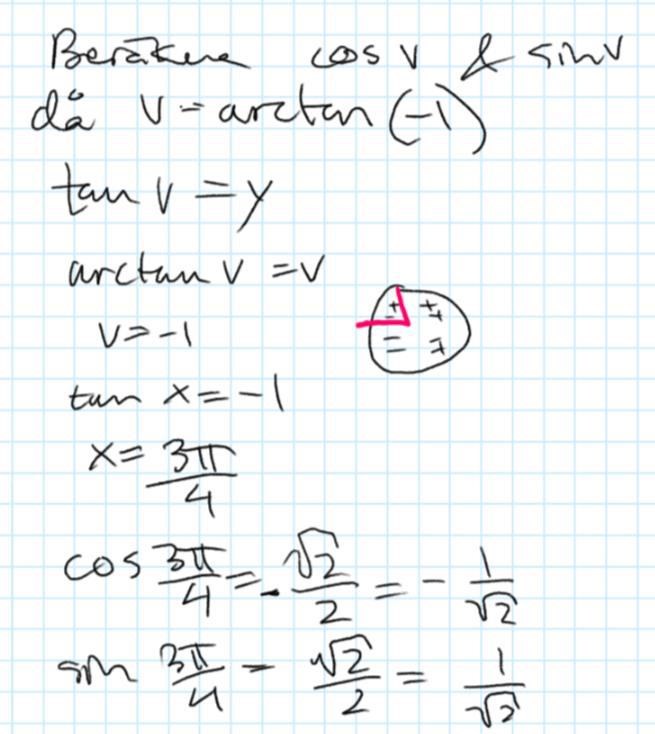 Beräkna cos v & sin v
då v = arctan (-1)
tan v = y
arctan v = v
v = -1
+ +
- +
= - +
tan x = -1
x = 3π/4
cos 3π/4 = - √2/2 = - 1/√2
sin 3π/4 = √2/2 = 1/√2